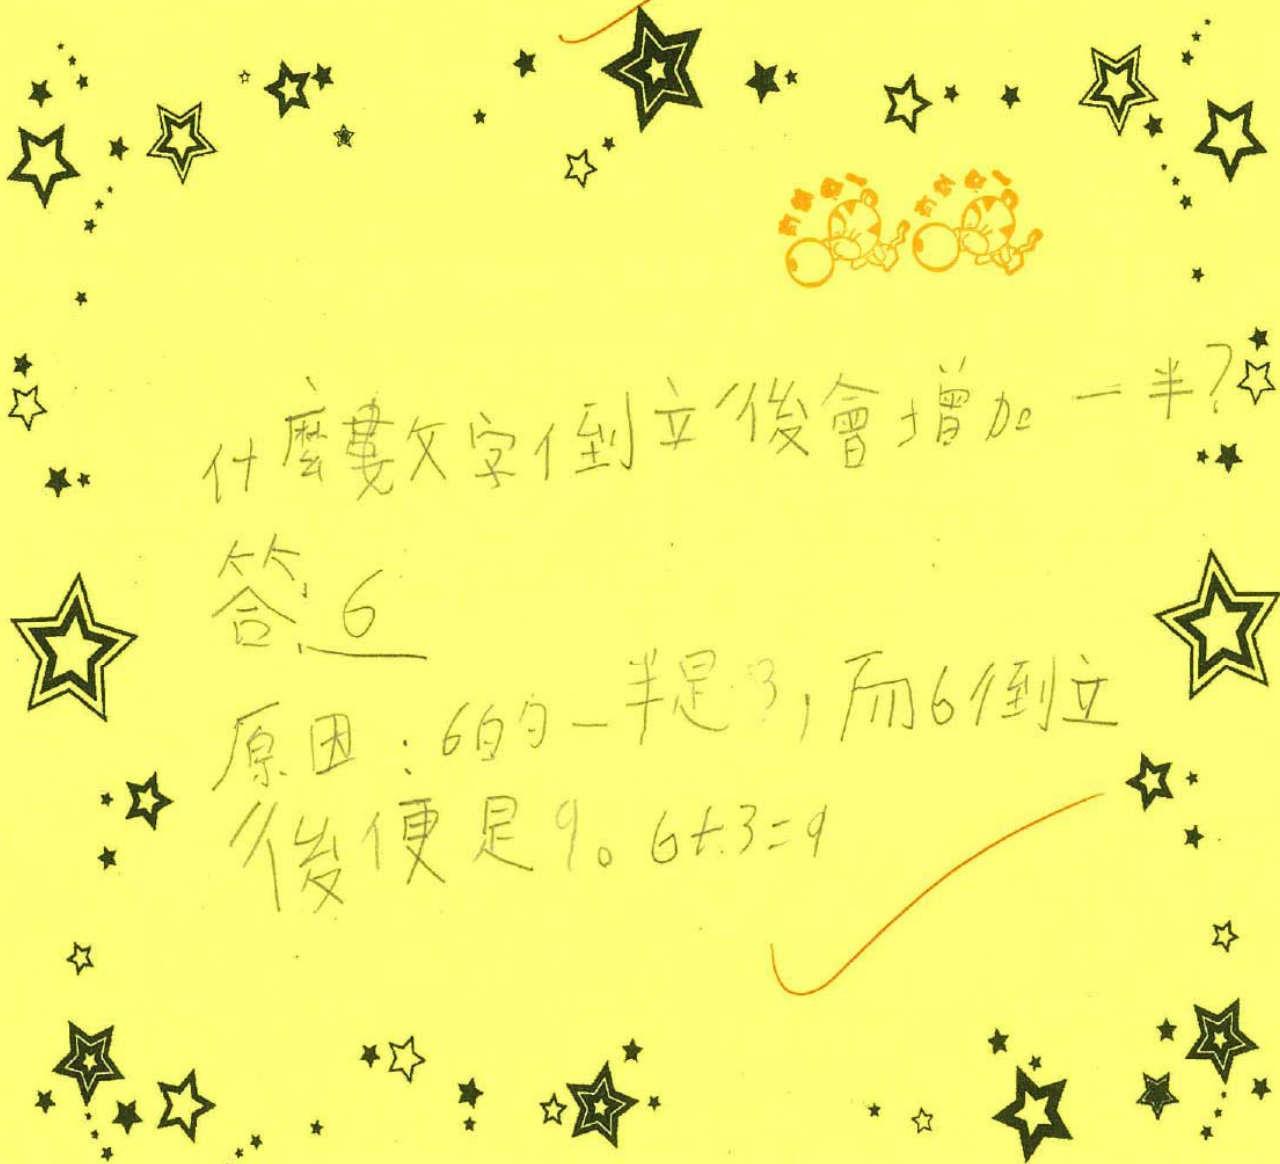 什麼數字倒立後會增加一半?
答:6
原因:6的一半是3,而6倒立
後便是9。6+3=9